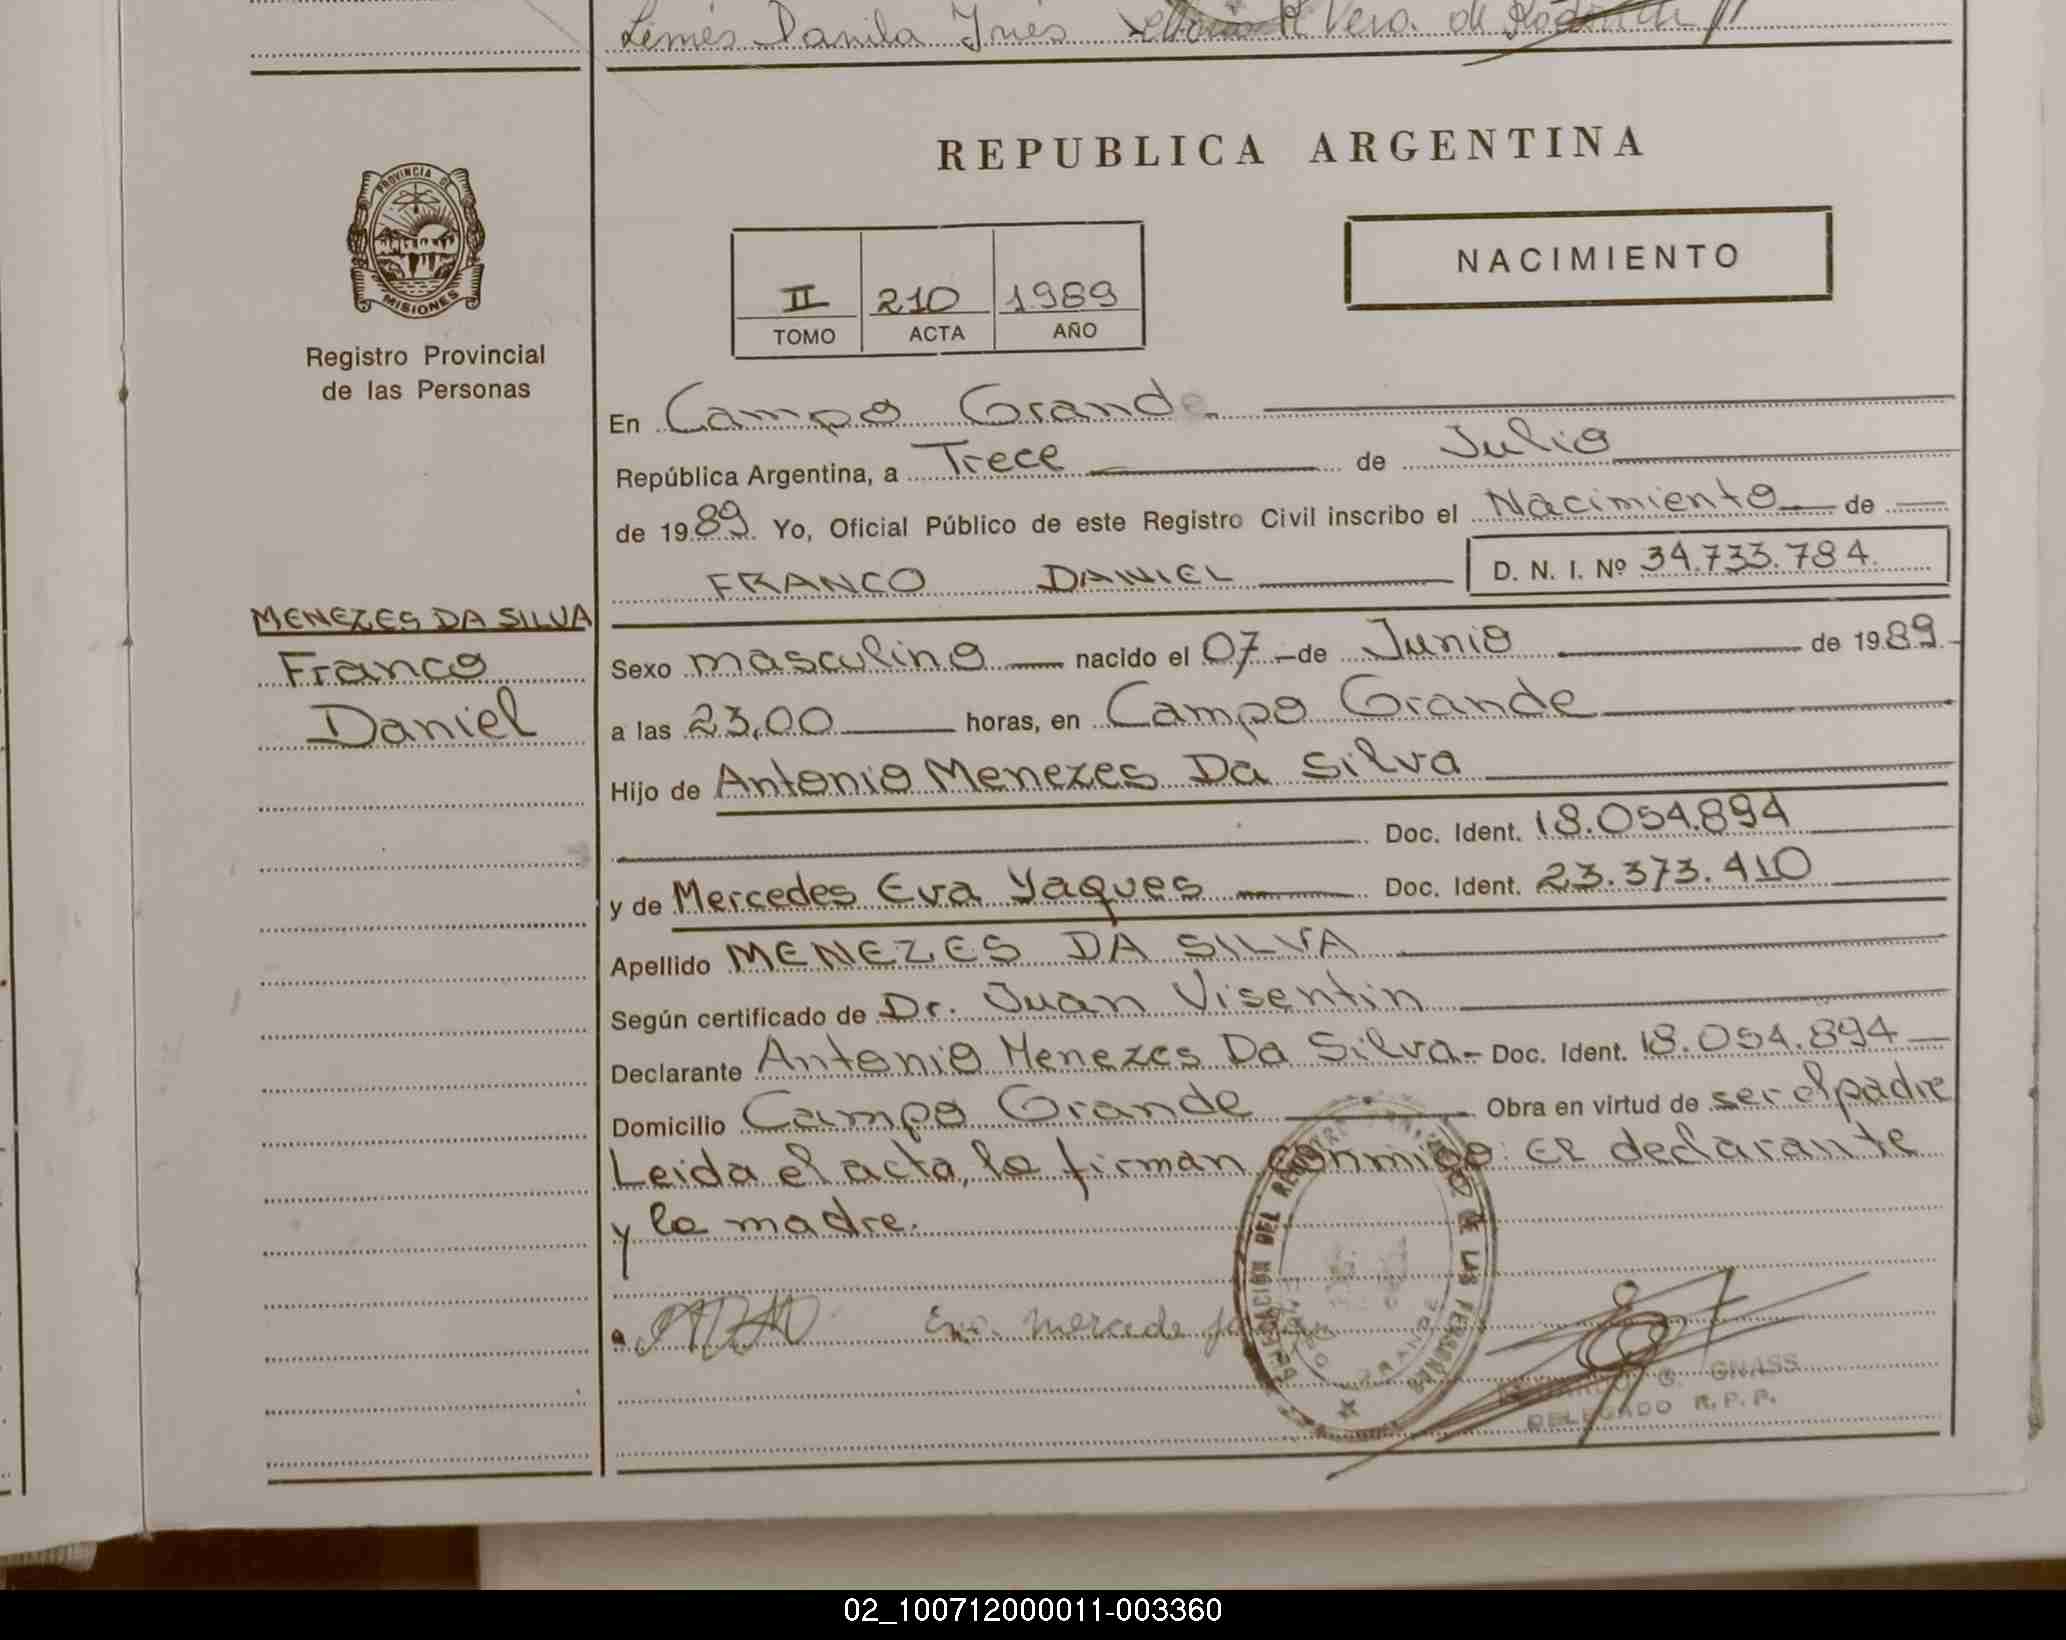 Danila Inés Vera de
PROVINCIA DE
MISIONES
Registro Provincial
de las Personas
REPUBLICA ARGENTINA
NACIMIENTO
II 210 1989
TOMO ACTA AÑO
En Campo Grande
República Argentina, a Trece de Julio
de 1989. Yo, Oficial Público de este Registro Civil inscribo el Nacimiento de
FRANCO DANIEL D. N. I. Nº 34.733.784
MENEZES DA SILVA
Franco
Daniel
Sexo masculino nacido el 07 de Junio de 1989
a las 23,00 horas, en Campo Grande
Hijo de Antonio Menezes Da Silva
Doc. Ident. 18.054.894
y de Mercedes Eva Yaques Doc. Ident. 23.373.410
Apellido MENEZES DA SILVA
Según certificado de Dr. Juan Visentin
Declarante Antonio Menezes Da Silva- Doc. Ident. 18.054.894
Domicilio Campo Grande Obra en virtud de ser el padre
Leida el acta, la firman conmigo: el declarante
y la madre.
Eva mercede
DEL REGISTRO DE LAS PERSONAS
GRANDE
G. GNASS
DELEGADO R.P.P.
02_100712000011-003360